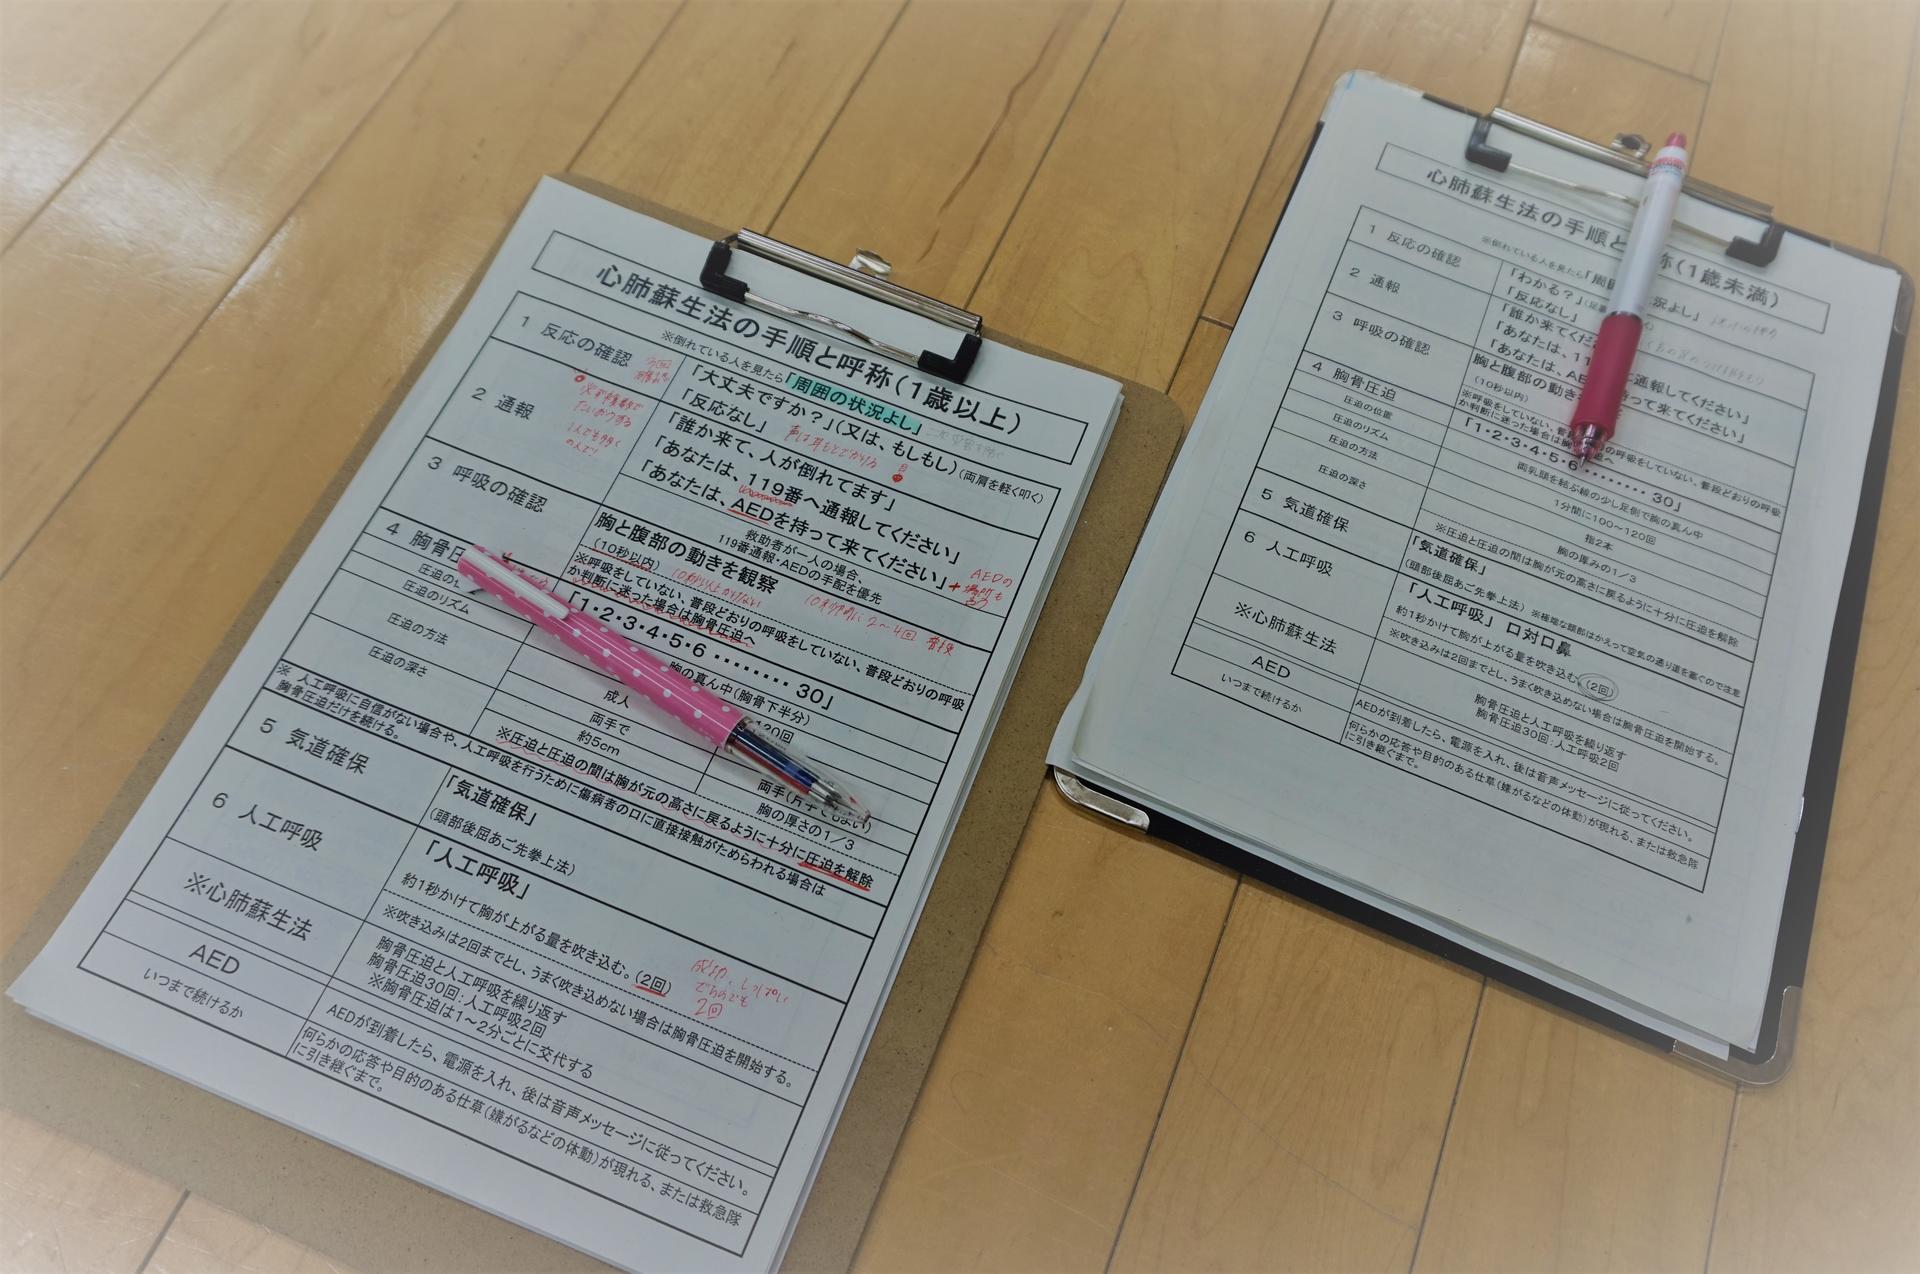 心肺蘇生法の手順と呼称(1歳以上)
※倒れている人を見たら「周囲の状況よし」
1 反応の確認
「大丈夫ですか?」(又は、もしもし)(両肩を軽く叩く)
「反応なし」
2 通報
「誰か来て、人が倒れてます」
「あなたは、119番へ通報してください」
「あなたは、AEDを持って来てください」
救助者が一人の場合、
119番通報・AEDの手配を優先
AEDの
場所も
3 呼吸の確認
胸と腹部の動きを観察
(10秒以内)
※呼吸をしていない、普段どおりの呼吸をしていない、普段どおりの呼吸
か判断に迷った場合は胸骨圧迫へ
4 胸骨圧
「1・2・3・4・5・6・・・・・・・30」
圧迫の
胸の真ん中(胸骨下半分)
圧迫のリズム
120回
成人
圧迫の方法
両手で
両手(片手でもよい)
圧迫の深さ
約5cm
胸の厚さの1/3
※圧迫と圧迫の間は胸が元の高さに戻るように十分に圧迫を解除
※ 人工呼吸に自信がない場合や、人工呼吸を行うために傷病者の口に直接接触がためらわれる場合は
胸骨圧迫だけを続ける。
5 気道確保
「気道確保」
(頭部後屈あご先拳上法)
6 人工呼吸
「人工呼吸」
約1秒かけて胸が上がる量を吹き込む。(2回)
※吹き込みは2回までとし、うまく吹き込めない場合は胸骨圧迫を開始する。
2回
※心肺蘇生法
胸骨圧迫と人工呼吸を繰り返す
胸骨圧迫30回:人工呼吸2回
※胸骨圧迫は1~2分ごとに交代する
AED
AEDが到着したら、電源を入れ、後は音声メッセージに従ってください。
いつまで続けるか
何らかの応答や目的のある仕草(嫌がるなどの体動)が現れる、または救急隊
に引き継ぐまで。
心肺蘇生法の手順と 称(1歳未満)
※倒れている人を見たら「周囲 状況よし」
1 反応の確認
「わかる?」
「反応なし」
2 通報
「誰か来てくだ
「あなたは、11 に通報してください」
「あなたは、AE 持って来てください」
3 呼吸の確認
胸と腹部の動き
(10秒以内)
※呼吸をしていない、普段 の呼吸をしていない、普段どおりの呼吸
か判断に迷った場合は胸 迫へ
4 胸骨圧迫
「1・2・3・4・5・6・・・・・・・・30」
圧迫の位置
両乳頭を結ぶ線の少し足側で胸の真ん中
圧迫のリズム
1分間に100~120回
圧迫の方法
指2本
圧迫の深さ
胸の厚みの1/3
※圧迫と圧迫の間は胸が元の高さに戻るように十分に圧迫を解除
5 気道確保
「気道確保」
(頭部後屈あご先拳上法)※極端な頭部はかえって空気の通り道を塞ぐので注意
6 人工呼吸
「人工呼吸」口対口鼻
約1秒かけて胸が上がる量を吹き込む(2回)
※吹き込みは2回までとし、うまく吹き込めない場合は胸骨圧迫を開始する。
※心肺蘇生法
胸骨圧迫と人工呼吸を繰り返す
胸骨圧迫30回:人工呼吸2回
AED
AEDが到着したら、電源を入れ、後は音声メッセージに従ってください。
いつまで続けるか
何らかの応答や目的のある仕草(嫌がるなどの体動)が現れる、または救急隊
に引き継ぐまで。